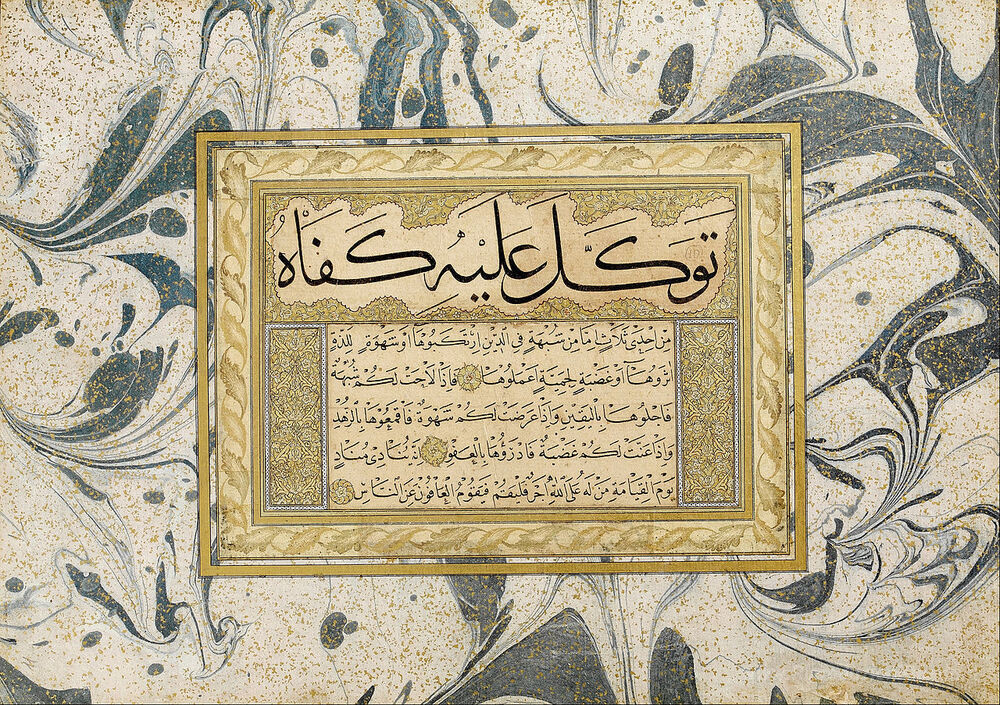 تَوَكَّلَ عَلَيْهِ كَفَاهُ
مِنْ اِحْدَى ثَلَاثٍ اِمَّا مِنْ شُبْهَةٍ فِى الدِّينِ ارْتَكَبُوهَا اَوْ شَهْوَةٍ لِلَذَّةٍ
اٰثَرُوهَا اَوْ غَضْبَةٍ لِحَمِيَّةٍ اَعْمَلُوهَا فَاِذَا لَاحَتْ لَكُمْ شُبْهَةٌ
فَاجْلُوهَا بِالْيَقِينِ وَاِذَا عَرَضَتْ لَكُمْ شَهْوَةٌ فَاقْمَعُوهَا بِالزُّهْدِ
وَاِذَا عَنَّتْ لَكُمْ غَضْبَةٌ فَادْرَؤُهَا بِالْعَفْوِ يُنَادِى مُنَادٍ
يَوْمَ الْقِيَامَةِ مَنْ لَهُ عَلَى اللّٰهِ اَجْرٌ فَلْيَقُمْ فَيَقُومُ الْعَافُونَ عَنِ النَّاسِ